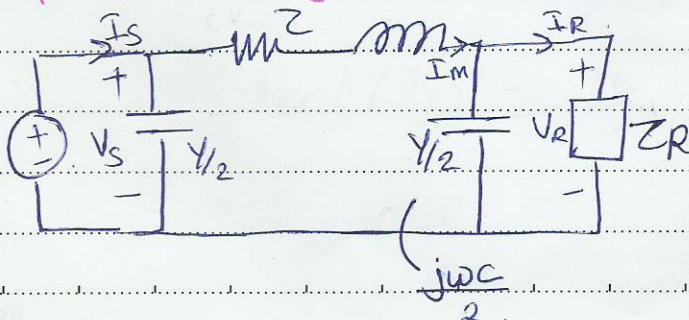 IS Z IR
+ IM +
+ - VS Y/2 Y/2 VR ZR
- -
jωc
2